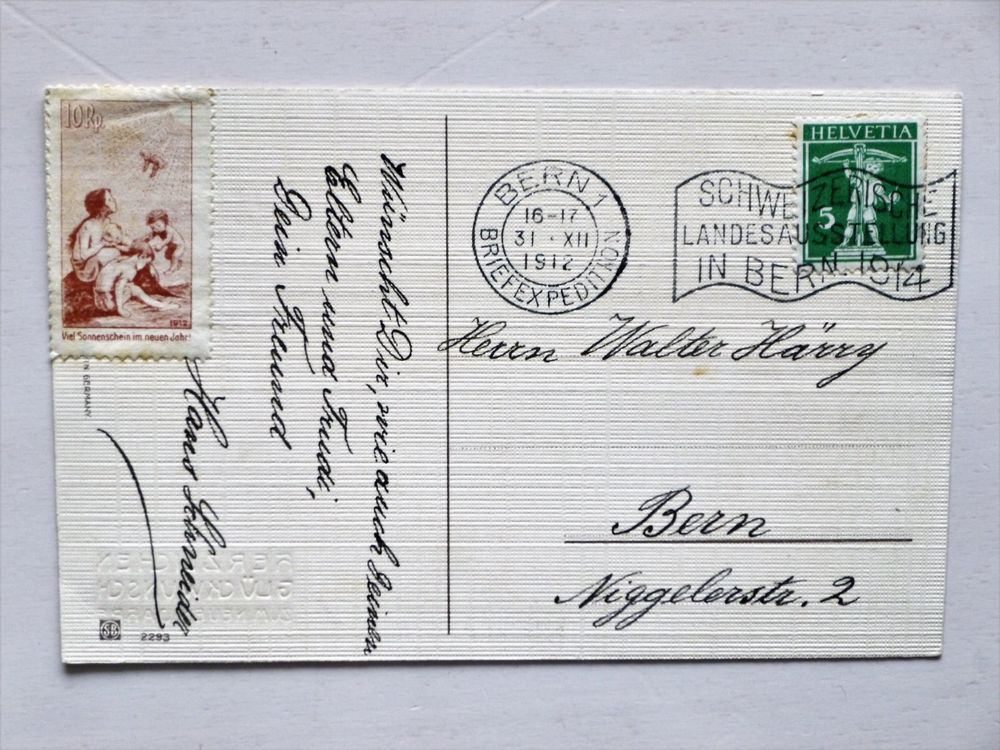 10Rp
1912
Viel Sonnenschein im neuen Jahr!
IN GERMANY
Wünscht Dir, wie auch Deinen
Eltern und Trudi,
Dein Freund
Hans Schneider
HERZLICHEN
GLÜCKWUNSCH
ZUM NEUEN JAHRE
SB
2293
BERN 1
16-17
31·XII
1912
BRIEFEXPEDITION
HELVETIA
5
SCHWEIZERISCHE
LANDESAUSSTELLUNG
IN BERN 1914
Herrn Walter Härry
Bern
Niggelerstr. 2